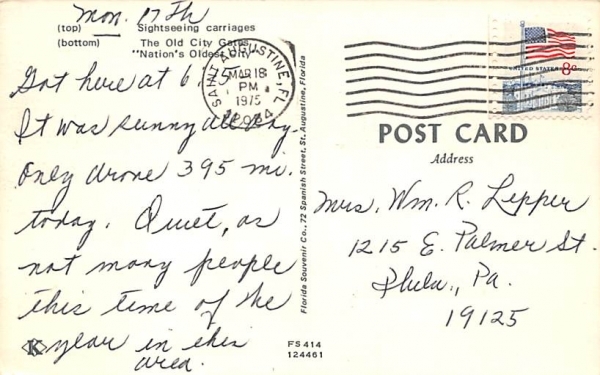 Mon. 17th
(top) Sightseeing carriages
(bottom) The Old City Gates,
"Nation's Oldest City"
Got here at 6
It was sunny all day.
Only drove 395 mi.
today. Quiet, as
not many people
this time of the
year in this
area.
K
FS414
124461
Florida Souvenir Co., 72 Spanish Street, St. Augustine, Florida
SAINT AUGUSTINE, FL
MAR 18
PM
1975
UNITED STATES 8c
POST CARD
Address
Mrs. Wm. R. Lepper
1215 E. Palmer St.
Phila., Pa.
19125